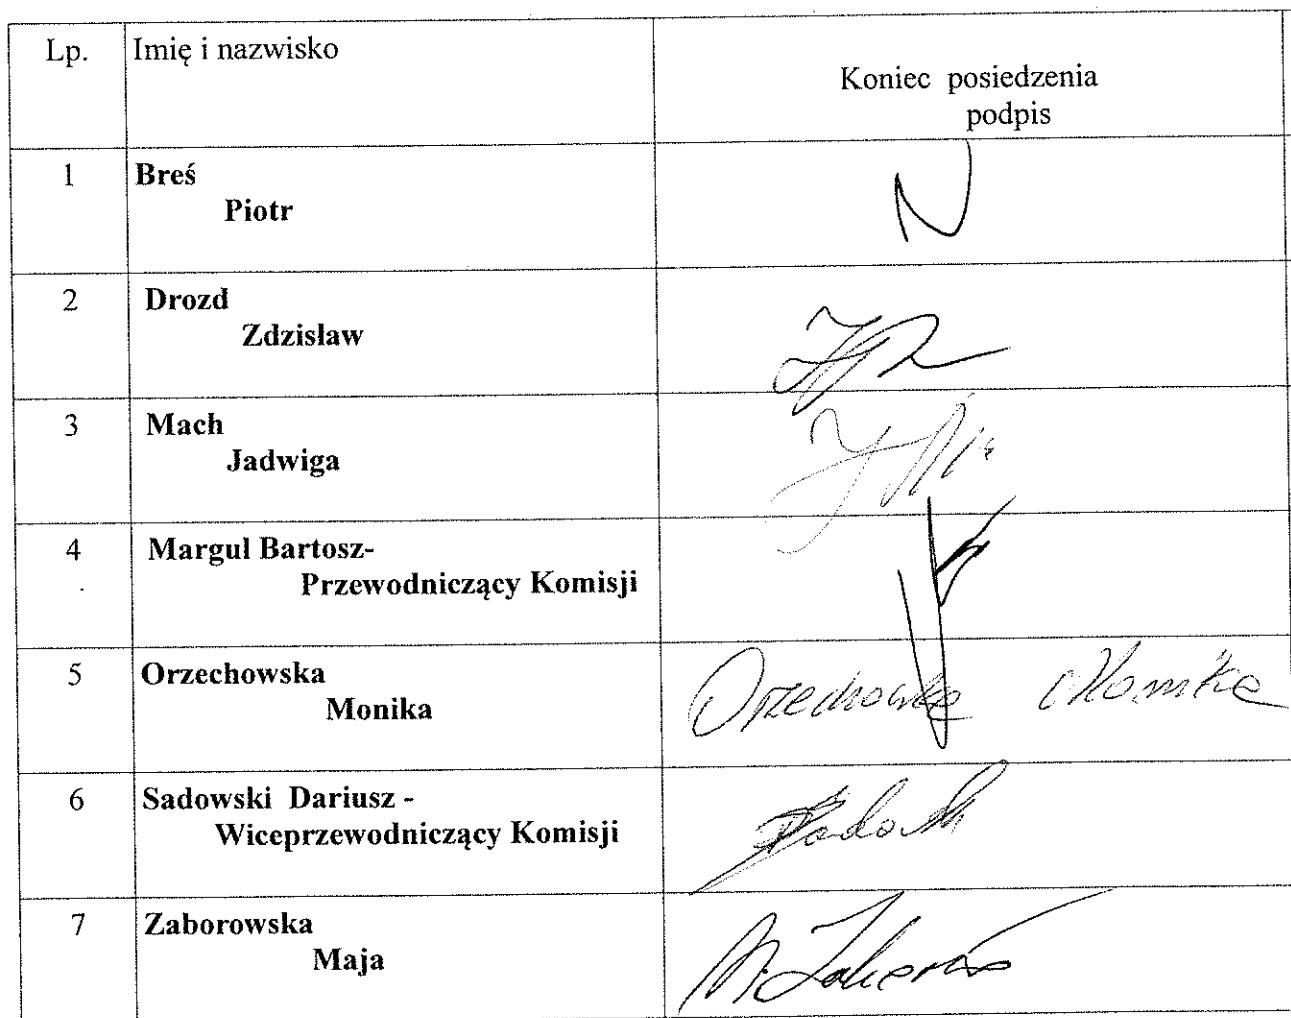 Lp. Imię i nazwisko
Koniec posiedzenia
podpis
1 Breś
Piotr
2 Drozd
Zdzisław
3 Mach
Jadwiga
4 Margul Bartosz-
Przewodniczący Komisji
5 Orzechowska
Monika
Orzechowska Monika
6 Sadowski Dariusz -
Wiceprzewodniczący Komisji
7 Zaborowska
Maja